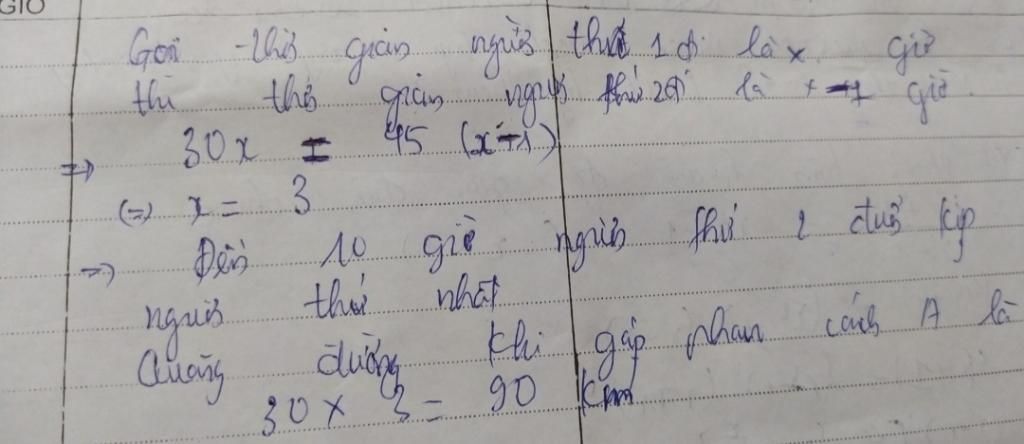 GIỜ
Gọi thời gian người thứ 1 đi là x giờ
thì thời gian người thứ 2 đi là x - 1 giờ.
=> 30x = 45 (x-1)
(=) x = 3
=> Đến 10 giờ người thứ 2 đuổi kịp
người thứ nhất
Quãng đường khi gặp nhau cách A là
30 x 3 = 90 km